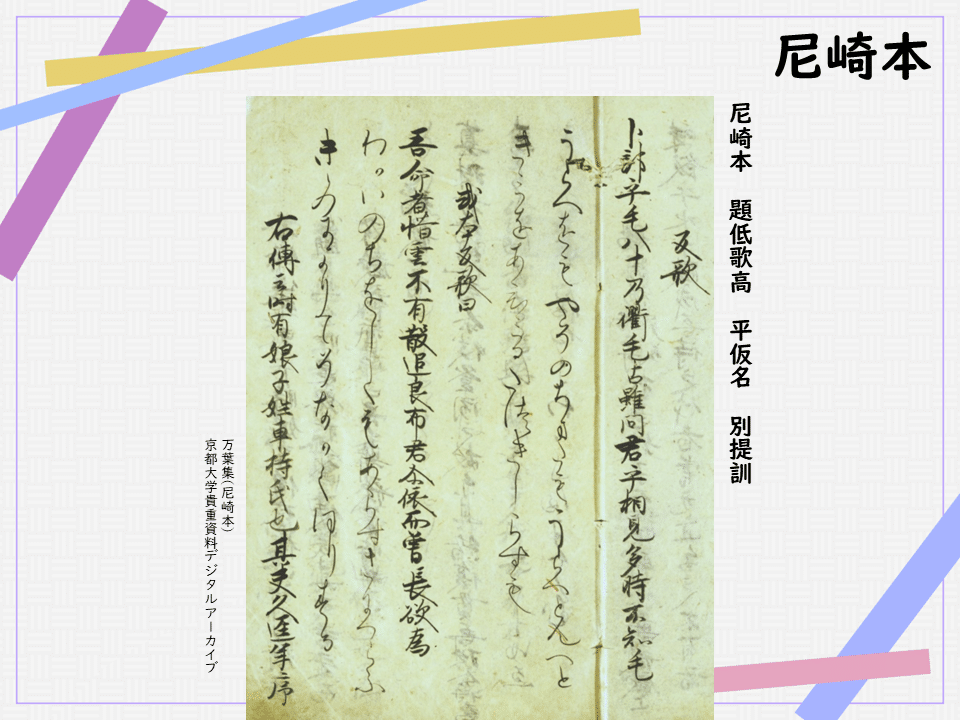 尼崎本
尼崎本　題低歌高　平仮名　別提訓
反歌
卜部乎毛八十乃衢毛占雖問君乎相見多時不知毛
うらへをもやそのちまたもうらへとんへと
きみをあひみるたつきしらすも
或本反歌曰
吾命者惜雲不有散追良布君尓依而曽長欲為
わかいのちをしくもあらすさにつらふ
きみによりてそなかくほりする
右傳云時有娘子姓車持氏也其夫久逕年序
万葉集(尼崎本)
京都大学貴重資料デジタルアーカイブ